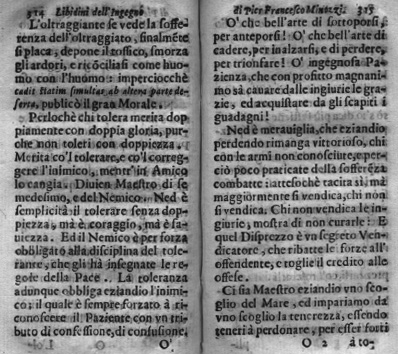 314 Libidini dell'Ingegno
L'oltraggiante se vede la soffe-
renza dell'oltraggiato, finalmẽte
si placa, depone il tossico, smorza
gli ardori, e ricõciliasi come huo-
mo con l'huomo: imperciocchè
cadit statim simultas, ab altera parte de-
serta, publicò il gran Morale.
Perlochè chi tolera merita dop-
piamente con doppia gloria, pur-
che non toleri con doppiezza.
Merita co'l tolerare, e co'l correg-
gere l'inimico, mentr'in Amico
lo cangia. Diuien Maestro di se
medesimo, e del Nemico. Ned è
semplicità il tolerare senza dop-
piezza, mà è coraggio, mà è sa-
uiezza. Ed il Nemico è per forza
obbligato alla disciplina del tole-
rante, che gli hà insegnate le re-
gole della Pace. Là toleranza
adunque obbliga eziandio l'inimi-
co; il quale è sempre forzato à ri-
conoscere il Paziente con vn tri-
buto di confessione, di confusione.
O'
di Pier Francesco Minozzi. 315
O' che bell'arte di sottoporsi,
per anteporsi! O' che bell'arte di
cadere, per inalzarsi, e di perdere,
per trionfare! O' ingegnosa Pa-
zienza, che con profitto magnani-
mo sà cauare dalle ingiurie le gra-
zie, ed acquistare da gli scapiti i
guadagni!
Ned è merauiglia, che eziandio
perdendo rimanga vittorioso, chi
con le armi non conosciute, e per-
ciò poco praticate della sofferẽza
combatte: attesochè tacita sì, mà
maggiormente si vendica, chi non
si vendica. Chi non vendica le in-
giurie, mostra di non curarle: E
quel Disprezzo è vn segreto Ven-
dicatore, che ribatte le forze all'
offendente, e toglie il credito alle
offese.
Ci sia Maestro eziandio vno sco-
glio del Mare, ed impariamo da
vno scoglio la tenerezza, essendo
teneri à perdonare, per esser forti
O 2 à to-